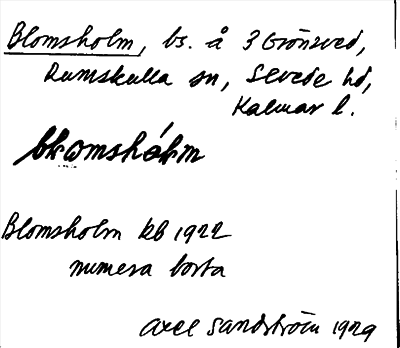 Blomsholm, bs. å 3 Grönsved,
Rumskulla sn, Sevede hd,
Kalmar l.
blomshólm
Blomsholm kb 1922
numera borta
Axel Sandström 1929